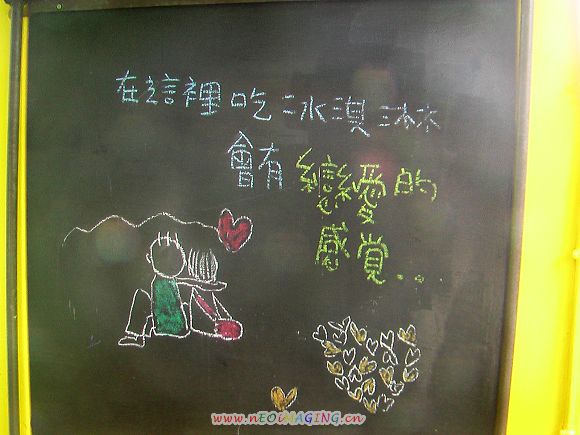 在這裡吃冰淇淋
會有戀愛的
感覺..
www.nEOiMAGING.cn